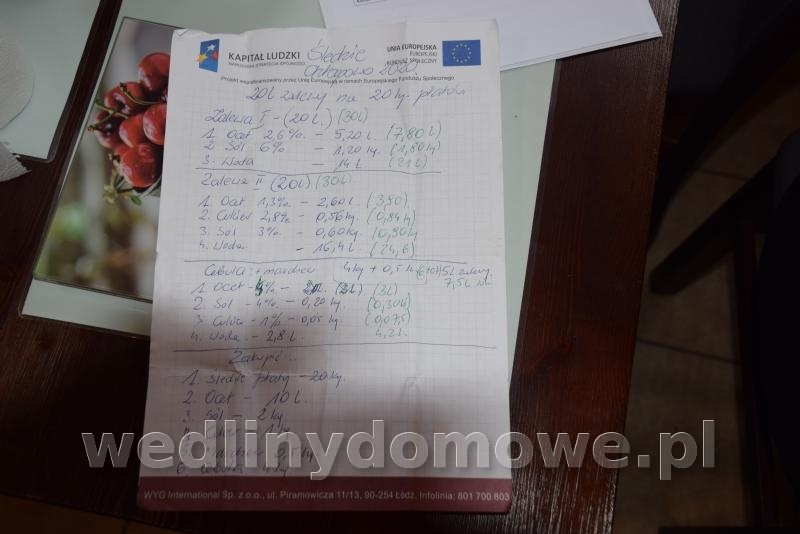 KAPITAŁ LUDZKI
NARODOWA STRATEGIA SPÓJNOŚCI
UNIA EUROPEJSKA
EUROPEJSKI
FUNDUSZ SPOŁECZNY
Śledzie
2020.
Projekt współfinansowany przez Unię Europejską w ramach Europejskiego Funduszu Społecznego
20L zalewy na 20 kg. płatów
Zalewa I - (20L) (30L)
1. Ocet 2,6% - 5,20 L. (7,80 L)
2 Sól 6% - 1,20 kg. (1,80 kg)
3. Woda - 14 L (21 L)
Zalewa II (20L) (30L)
1. Ocet 1,3% - 2,60 L. (3,90)
2. Cukier 2,8% - 0,56 kg. (0,84 kg)
3. Sól 3% - 0,60 kg. (0,90 kg)
4. Woda - 16,4 L. (24,6)
Cebula + marchew 4 kg + 0,5 kg 5L zalewy
7,5 L
1. Ocet - 4% - (2L) (3L)
2. Sól - 4% - 0,20 kg. (0,30 kg)
3 Cukier - 1% - 0,05 kg. (0,075)
4. Woda - 2,8 L. 4,2 L.
Zakupić:
1. śledzie płaty - 20 kg.
2. Ocet - 10 L.
3 Sól - 2 kg
4. Cukier - 1 kg
5. Marchew 0,5 kg
6. cebula 4 kg
wedlinydomowe.pl
WYG International Sp. z o.o., ul. Piramowicza 11/13, 90-254 Łódź, Infolinia: 801 700 803